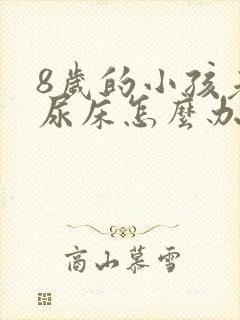 8歲的小孩老
尿床怎麼办
高山慕雪